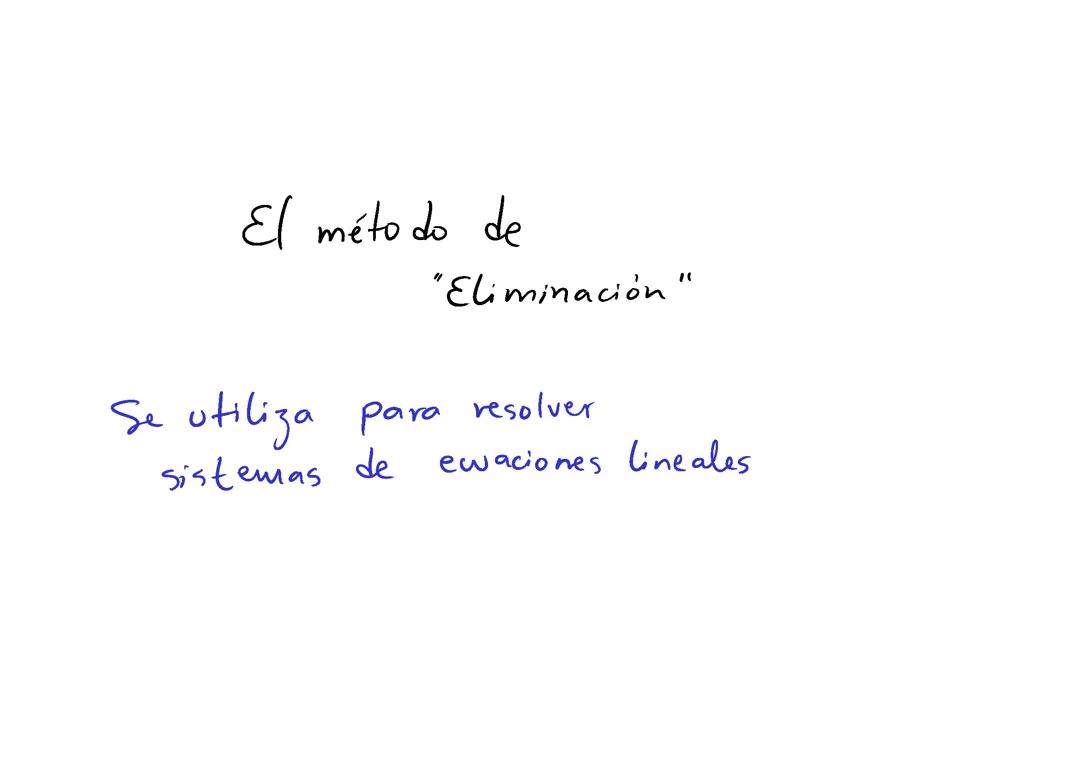 El método de
"Eliminación"
Se utiliza para resolver
sistemas de ecuaciones lineales